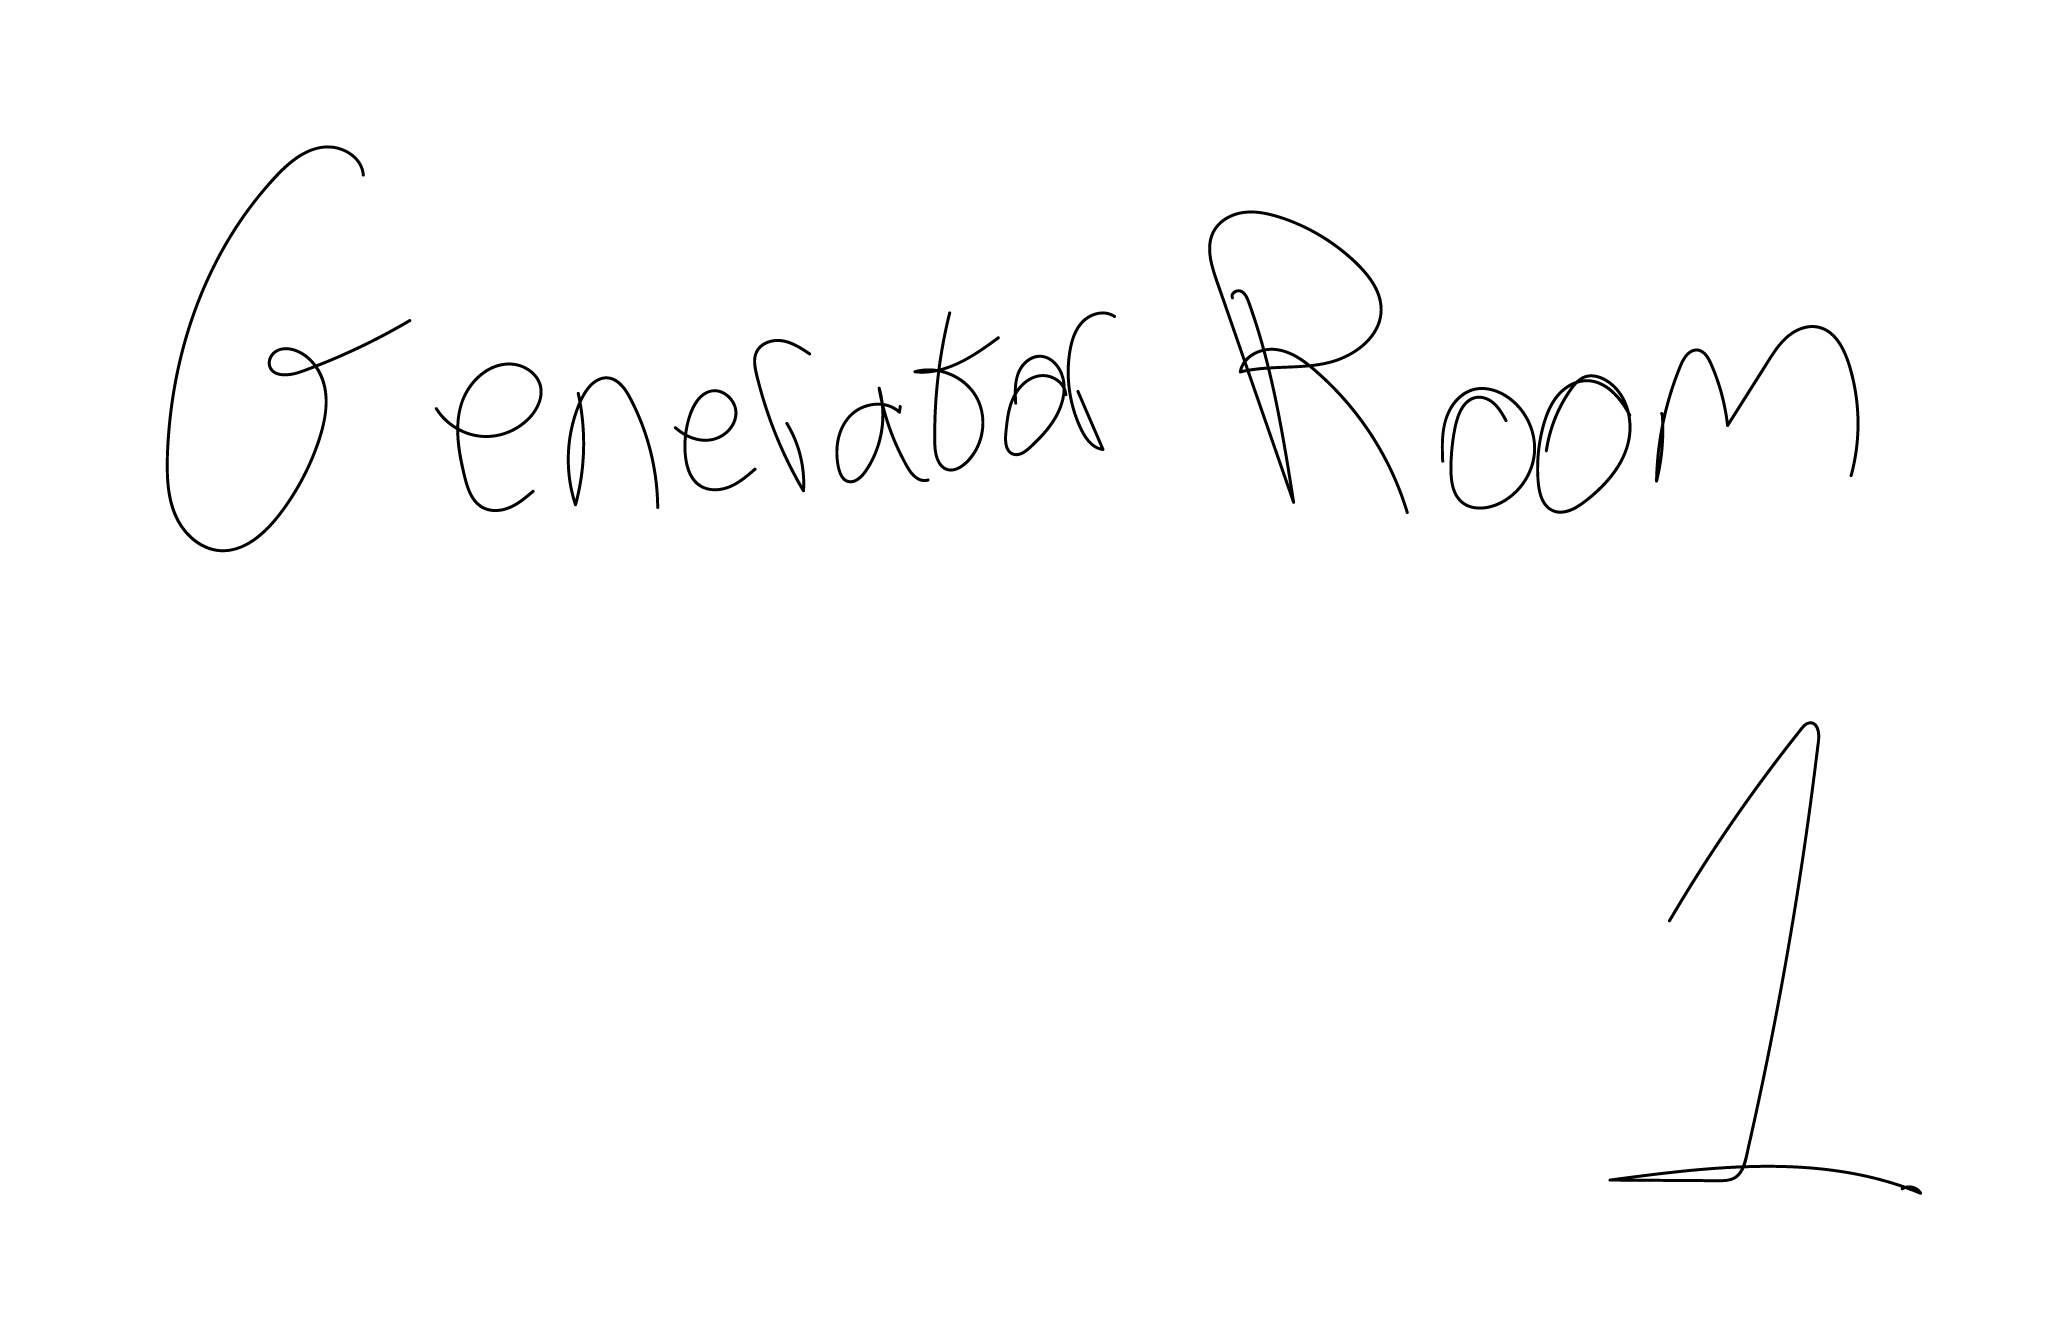 Generator Room
1